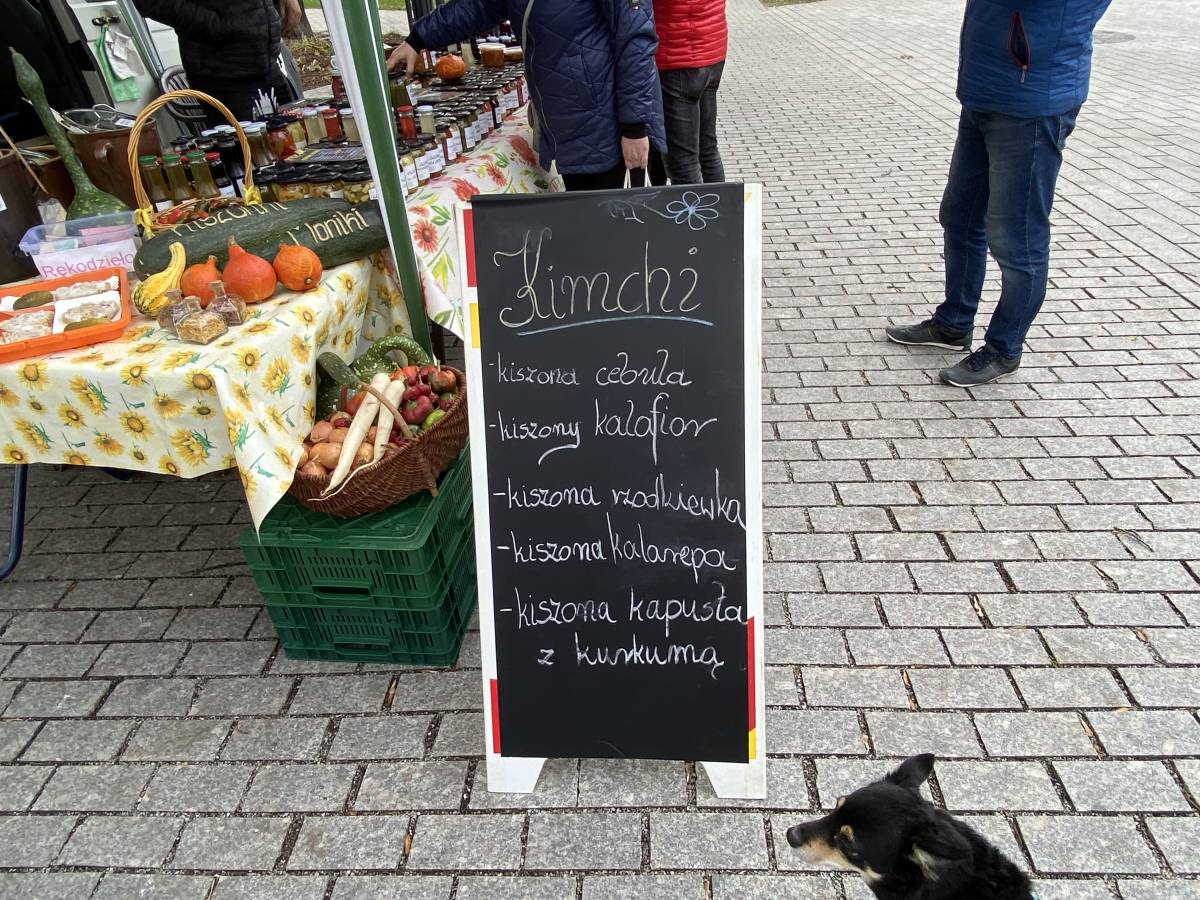 Kimchi
-kiszona cebula
-kiszony kalafior
-kiszona rzodkiewka
-kiszona kalarepa
-kiszona kapusta
z kurkumą
Rękodzieło